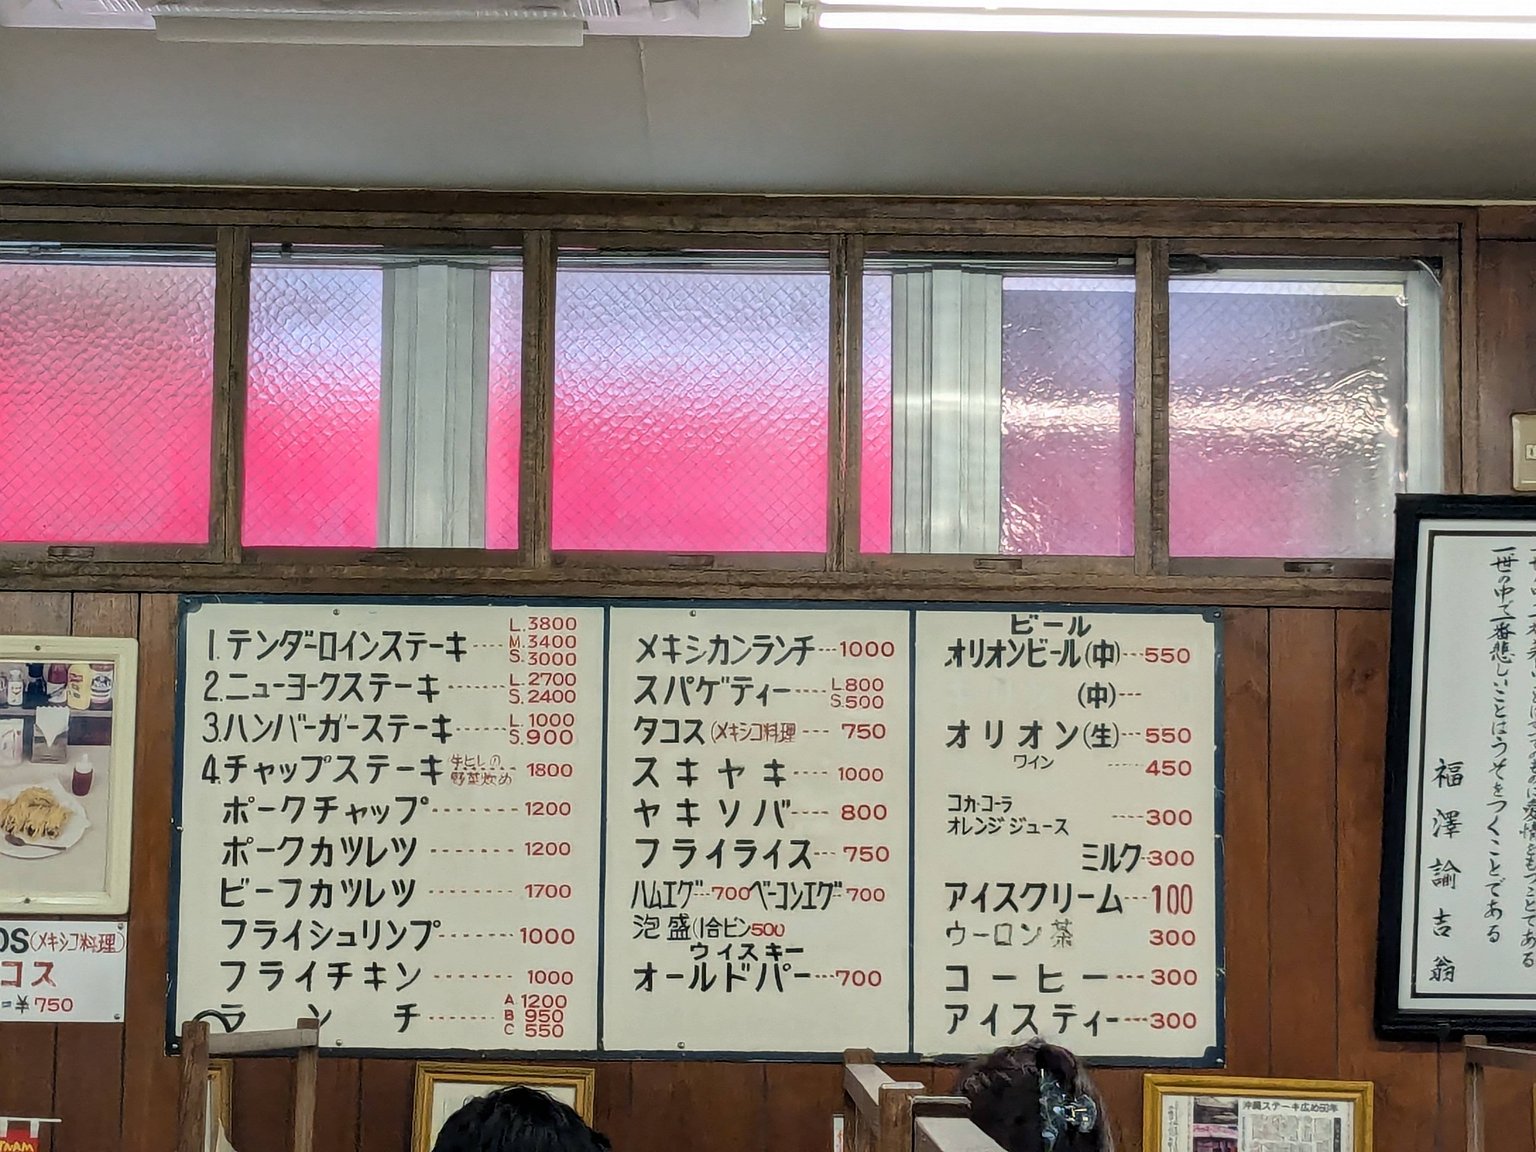 1.テンダーロインステーキ L.3800 M.3400 S.3000
2.ニューヨークステーキ L.2700 S.2400
3.ハンバーガーステーキ L.1000 S.900
4.チャップステーキ 牛ヒレの野菜炒め 1800
ポークチャップ 1200
ポークカツレツ 1200
ビーフカツレツ 1700
フライシュリンプ 1000
フライチキン 1000
ランチ A 1200 B 950 C 550
メキシカンランチ 1000
スパゲティー L800 S.500
タコス(メキシコ料理 750
スキヤキ 1000
ヤキソバ 800
フライライス 750
ハムエグ 700 ベーコンエグ 700
泡盛(1合ビン500
ウイスキー
オールドパー 700
ビール
オリオンビール(中) 550
(中)
オリオン(生) 550
ワイン 450
コカ・コーラ
オレンジジュース 300
ミルク 300
アイスクリーム 100
ウーロン茶 300
コーヒー 300
アイスティー 300
OS(メキシコ料理)
コス
¥750
一世の中で一番悲しいことはうそをつくことである
福澤諭吉翁
沖縄ステーキ広め60年